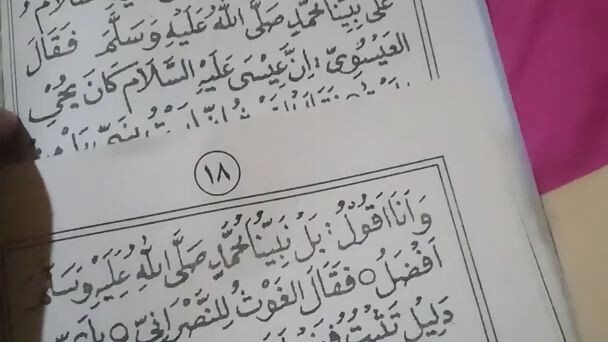 عَلَى نَبِيِّنَا مُحَمَّدٍ صَلَّى اللهُ عَلَيْهِ وَسَلَّمَ فَقَالَ
الْعَيْسَوِيُّ : اِنَّ عِيْسَى عَلَيْهِ السَّلَامُ كَانَ يُحْيِ
١٨
وَاَنَا اَقُوْلُ : بَلْ نَبِيُّنَا مُحَمَّدٍ صَلَّى اللهُ عَلَيْهِ وَسَلَّمَ
اَفْضَلُ ○ فَقَالَ الْغَوْثُ لِلنَّصْرَانِيِّ ○ بِاَيِّ
دَلِيْلٍ تَثْبُتُ